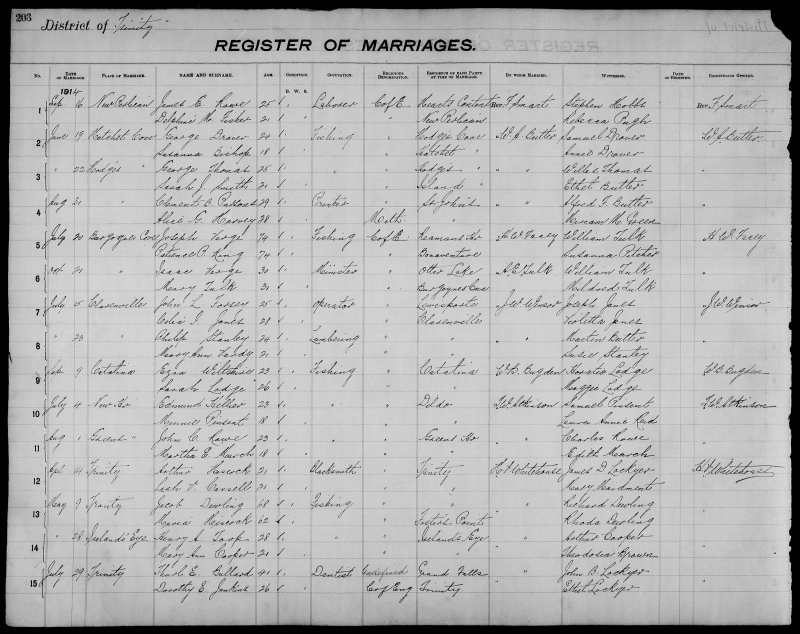 203
District of Trinity
REGISTER OF MARRIAGES.
No. DATE OF MARRIAGE PLACE OF MARRIAGE. NAME AND SURNAME. AGE. CONDITION. OCCUPATION. RELIGIOUS DENOMINATION. RESIDENCE OF EACH PARTY AT TIME OF MARRIAGE. BY WHOM MARRIED. WITNESSES. DATE OF REGISTRY. REGISTERING OFFICER.
B. W. S.
1914
1 Sep 16 New Perlican James E. Rowe 25 1 Laborer C of E Hearts Content Rev F. Smart Stephen Hobbs Rev F. Smart
Delphine M. 21 1 " New Perlican Rebecca Pugh
2 June 19 Hatchet Cove George Draver 24 1 Fishing " Hodges Cove W. J. Butler Samuel Draver W. J. Butler
Susanna Bishop 18 1 " Hatchet " Annie Draver
3 " 22 Hodges " George Thomas 25 1 " " Hodges " " " Willis Thomas "
Sarah J. Smith 21 1 " Island " Ethel Butler
4 Aug 21 " Clement B. Parsons 29 1 Printer " St John's " " Alfred G. Butler "
Alice G. Harvey 28 1 Meth " Miriam M. Green
5 July 20 Burgoynes Cove Joseph Verge 74 1 Fishing C of E H. W. Facey William Tulk H. W. Facey
Patience P. King 74 1 " Bonaventure Susanna Pitcher
6 Oct 21 " Isaac Verge 30 1 Minister " Otter Lake A. E. Tulk William Tulk "
Mary Tulk 31 1 " Burgoynes Cove Mildred Tulk
7 July 5 Clarenville John L. Tossey 25 1 Operator " Lewisporte J. W. Winsor Joseph Janes J. W. Winsor
Celia J. Janes 28 1 " Clarenville Violetta Janes
8 " 23 " Philip Stanley 24 1 Lumbering " " " Martin Butler "
Mary Ann Vardy 21 1 " " Susie Stanley
9 Feb 9 Catalina Ezra Wiltshire 23 1 Fishing " Catalina W. B. Bugden Horatio Lodge W. B. Bugden
Sarah Lodge 26 1 " " Maggie Lodge
10 July 4 New Hr Edmund Hellier 23 1 " " Dildo Atkinson Samuel Pinsent Atkinson
Minnie Pinsent 18 1 " " Laura Annie Reid
11 Aug 1 Green " John C. Rowe 23 1 " " Green Hr " Charles Rowe "
Martha E. March 18 1 " " Edith March
12 Apl 14 Trinity Arthur Hiscock 21 1 Blacksmith " Trinity H. J. Whitehouse James D. Lockyer H. J. Whitehouse
Cassell 21 1 " " Henry Maidment
13 May 9 Trinity Jacob Dewling 58 1 Fishing " " " Richard Dewling "
Hiscock 52 1 " Fosters Point Rhoda Dewling
14 " 28 Irelands Eye Henry A. 28 1 " " Irelands Eye " Arthur Cooper "
Mary Ann Cooper 21 1 " " Theodosia Brown
15 July 29 Trinity E. Bullard 41 1 Dentist Undefined Grand Falls " John B. Lockyer "
Dorothy E. Jenkins 26 1 C of Eng Trinity Ethel Lockyer